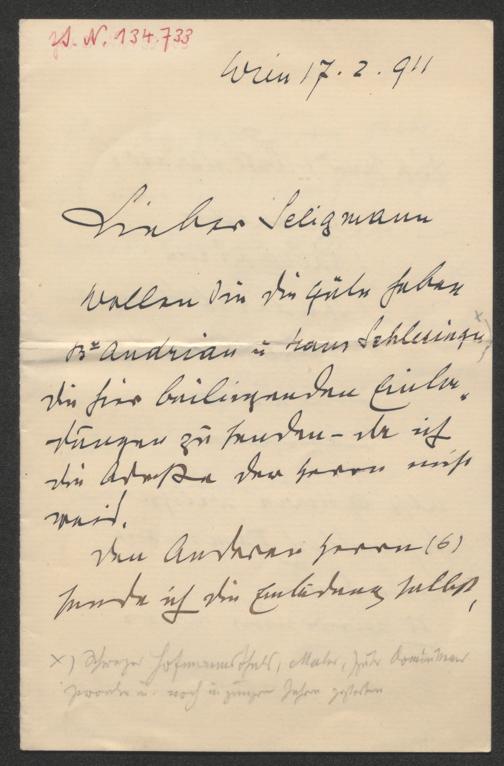 J. N. 134.733
Wien 17. 2. 911
Lieber Seligmann
Wollen Sie die Güte haben
Br Andrian u Hans Schlesinger x)
die hier beiliegenden Einla-
dungen zu senden – da ich
die Adresse der Herrn nicht
weiß.
Den Anderen Herrn (6)
sende ich die Einladung selbst,
x) Schwager Hofmannsthals, Maler, später Dominikaner
geworden u. noch in jungen Jahren gestorben